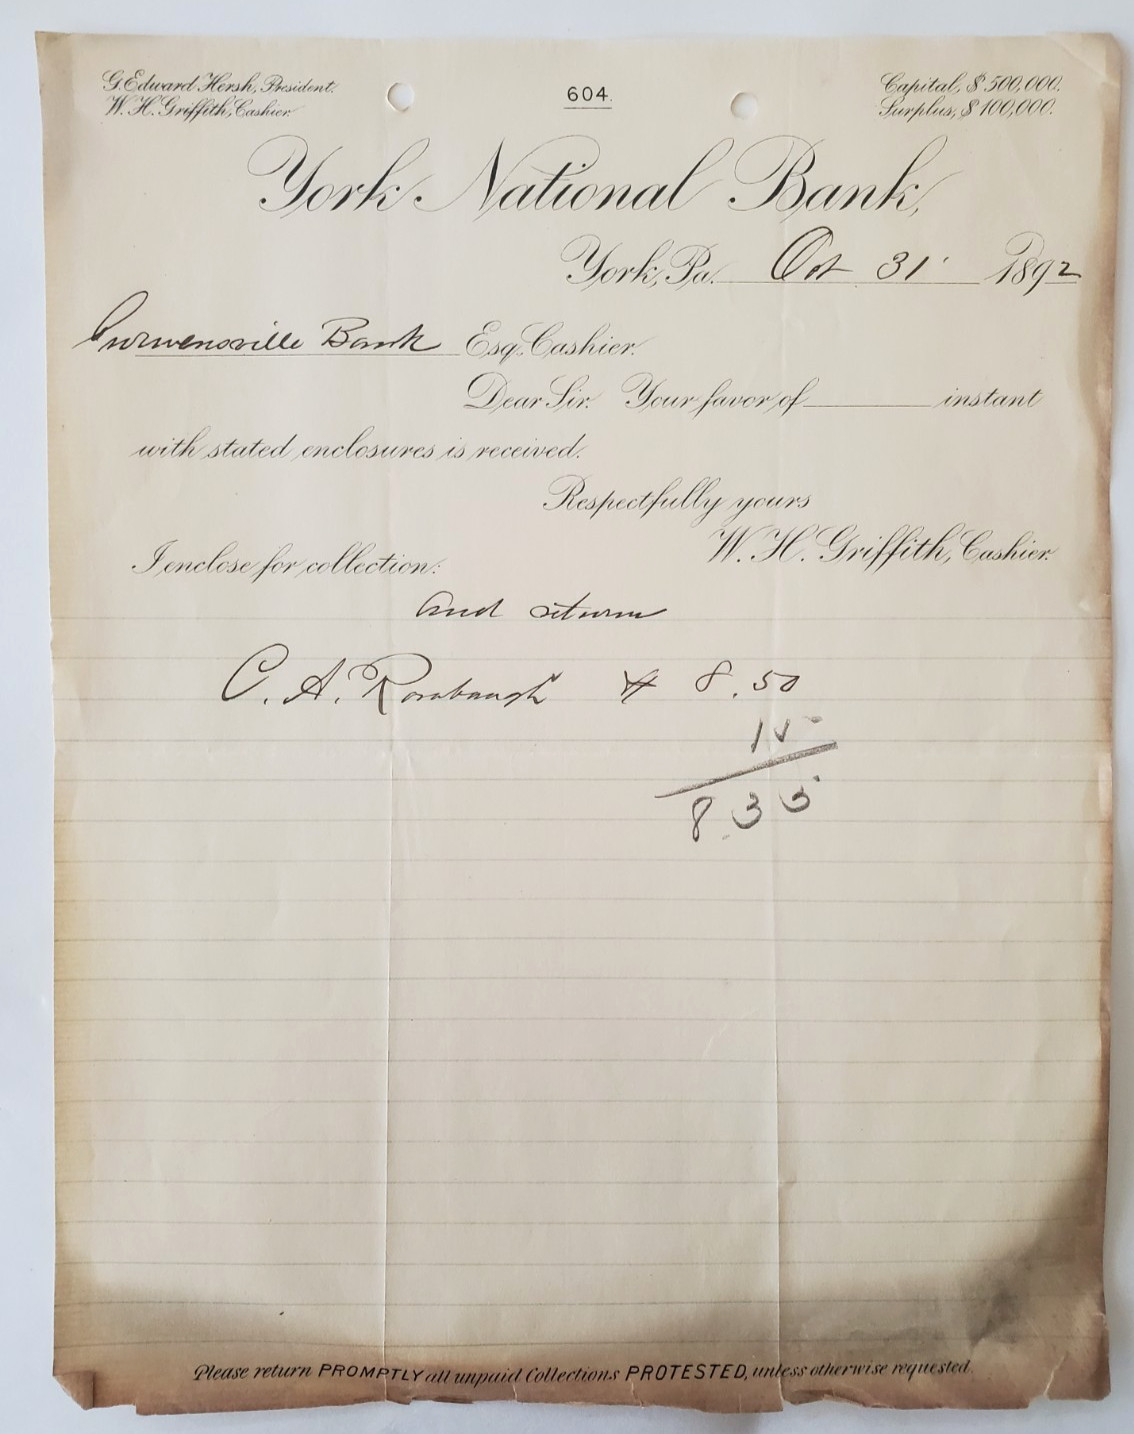 G. Edward Hersh, President.
W. H. Griffith, Cashier.
604.
Capital, $500,000.
Surplus, $100,000.
York National Bank,
York, Pa. Oct 31 1892
Curwensville Bank Esq. Cashier.
Dear Sir. Your favor of instant
with stated enclosures is received.
Respectfully yours
W. H. Griffith, Cashier.
I enclose for collection:
and return
C. A. Rorabaugh $ 8.50
15
8 35
Please return PROMPTLY all unpaid Collections PROTESTED, unless otherwise requested.